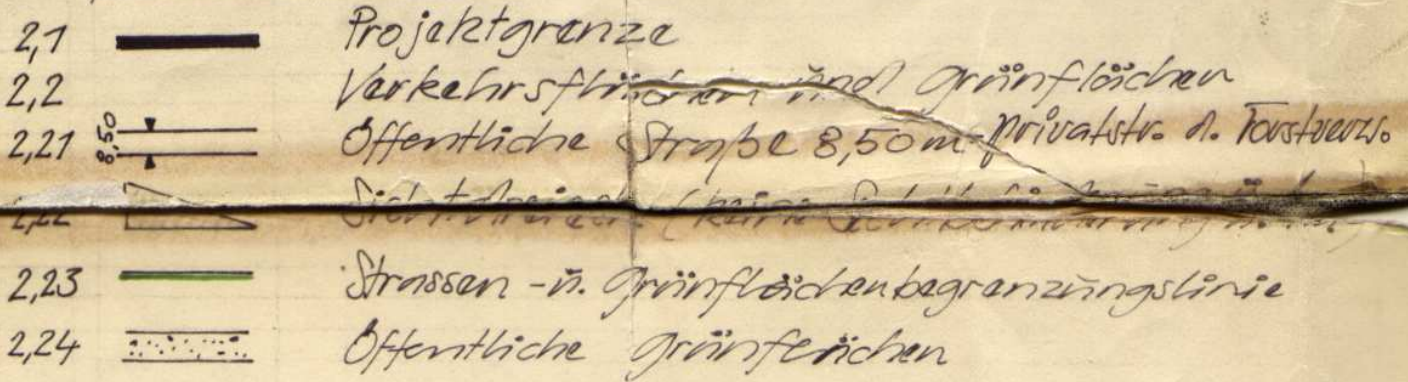 2,1 Projektgrenze
2,2 Verkehrsflächen und Grünflächen
2,21 8.50 Öffentliche Straße 8,50 m - Privatstr. d. Forstverw.
2,22 Sichtdreieck (keine
2,23 Strassen - ü. Grünflächenbegrenzungslinie
2,24 Öffentliche Grünflächen